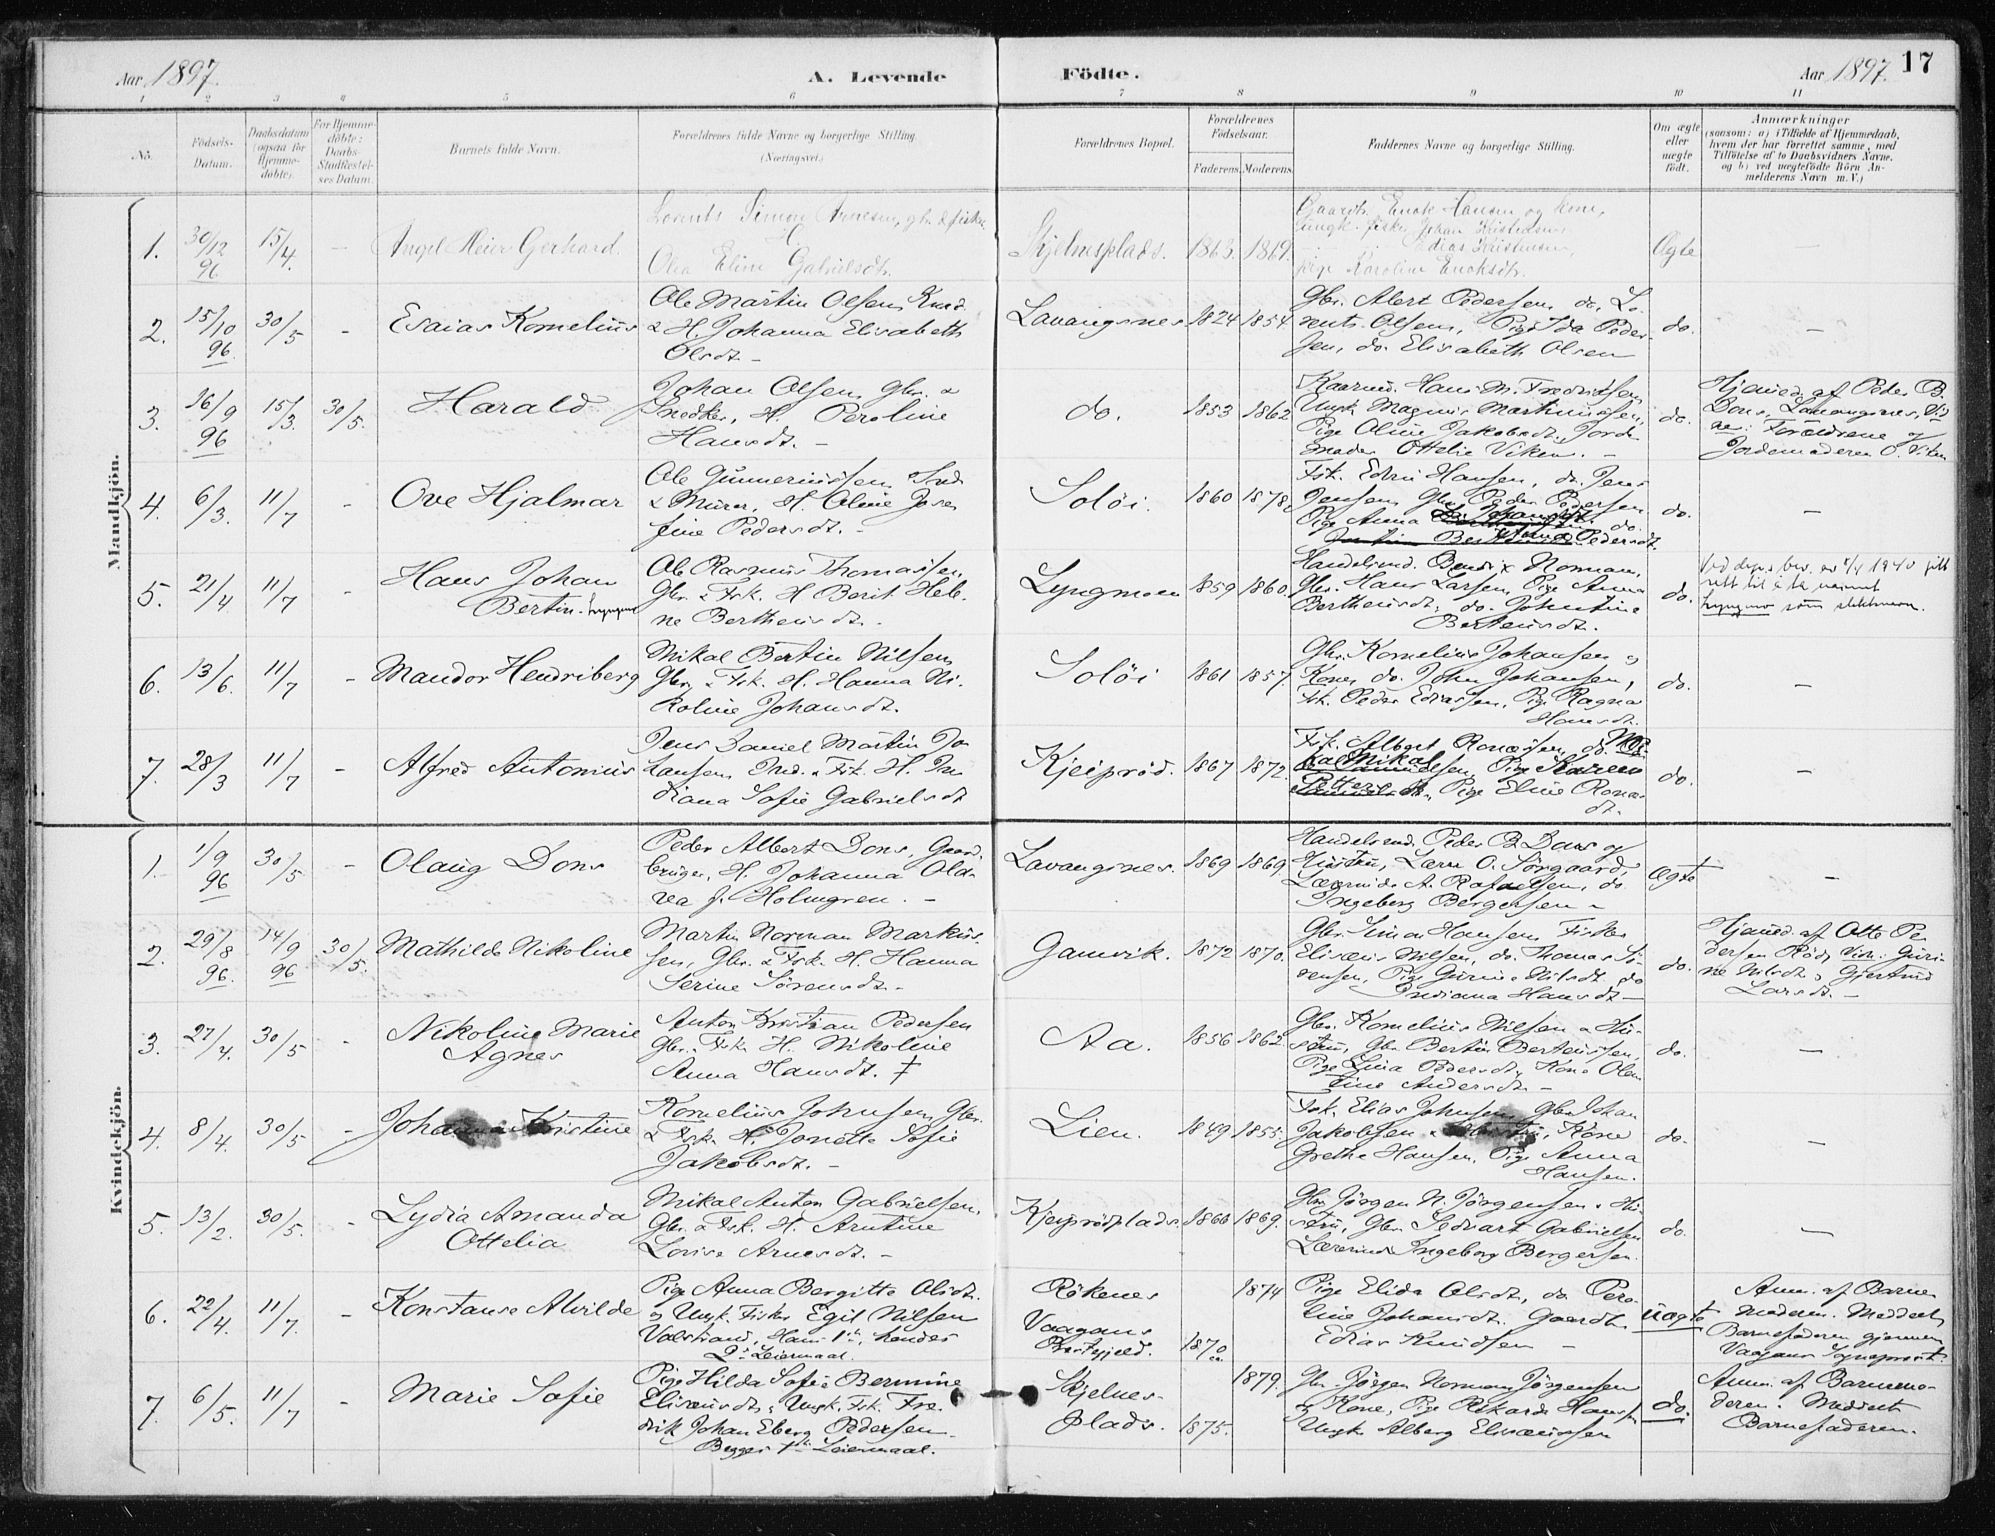 Aar 1897.
A. Levende
Födte.
Aar 1897.
17
1 2 3 4 5 6 7 8 9 10 11
No.
Födsels-
Datum.
Daabsdatum
(ogsaa for
Hjemme-
döbte).
For Hjemme-
döbte:
Daabs-
Stadfæstel-
ses Datum.
Barnets fulde Navn.
Forældrenes fulde Navne og borgerlige Stilling.
(Næringsvei.)
Forældrenes Bopæl.
Forældrenes
Födselsaar.
Faderens. Moderens.
Faddernes Navne og borgerlige Stilling.
Om ægte
eller
uægte
födt.
Anmærkninger
(saasom: a) i Tilfælde af Hjemmedaab,
hvem der har forrettet samme, med
Tilföielse af to Daabsvidners Navne,
og b) ved uægtefödte Börn An-
melderens Navn m. V.)
Mandkjön.
1.
30/12
96
15/4.
Angel Meier Gerhard.
Lorents Simon Arnesen, gbr. & fisker
H
Olea Eline Gabrielsdtr.
Skjelnesplads.
1863. 1861.
Gaardbr. Enok Hansen og kone,
Ungk. fisker Johan Kristensen,
Edias Kristensen,
pige Karoline Enoksdtr.
Ægte
2.
15/10
96
30/5
Esaias Kornelius
Ole Martin Olsen,
& H. Johanna Elisabeth
Olsdt. –
Lavangsnes
1824 1854
Gbr. Alert Pedersen, do. Lo-
rents Olsen, Pige Ida Peder-
sen, do. Elisabeth Olsen
do.
3.
16/9
96
15/3.
30/5.
Harald
Johan Olsen, Gbr. &
Snedker, H. Peroline
Hansdt. –
do.
1853 1862
Hans M. Fredriksen,
Ungk. Magnus Martinussen,
Pige Oline Jakobsdt., Jorde-
moder Ottelie Viken. –
do.
Hjemmed. af Peder B.
Dons, Lavangsnes, Vid-
ne: Forældrene og
Jordemoderen O. Viken
4.
6/3.
11/7
Ove Hjalmar
Ole Gunneriussen, Ind.
& Murer, H. Oline Jose-
fine Pedersdt. –
Soløi.
1860 1878.
Fsk. Edvin Hansen, do. Jens
Jensen, Gbr. Peder Pedersen
Pige Anna
Pedersdt.
do.
5.
21/4.
11/7
Hans Johan
Bertin.
Ole Rasmus Thomassen,
Gbr. & Fsk. H Berit Hele-
ne Bertheusdt. –
Lyngmoen
1859 1860.
Handelsmd. Bendix Norman,
Gbr. Hans Larsen, Pige Anna
Bertheusdt., do. Johntine
Berteusdt.
do.
Ved dep.s bev. av 1940 gitt
rett til å ta navnet
som slektsnavn.
6.
13/6.
11/7
Mandor Hendriberg
Mikal Bertin Nilsen,
Gbr. & Fsk. H. Hanna Ni-
koline Johansdt.
Soløi
1861 1857.
Gbr. Kornelius Johansen og
Kone, do. John Johansen,
Fsk. Peder Ediassen, Pige Ragna
Hansdt.
do.
7.
28/3
11/7
Alfred Antonius
Jens Daniel Martin Jo-
hansen, Ind. & Fsk. H. In-
diana Sofie Gabrielsdt
Kjeiprød.
1867 1872.
Fsk. Albert Renæssen, do.
Mikal
Pige Karen
Pige Eline
dt.
do.
Kvindekjön.
1.
1/9
96
30/5
Olaug Dons
Peder Albert Dons, Gaard-
bruger, H. Johanna Olda-
rea f. Holmgren. –
Lavangsnes.
1869 1869.
Handelsmd. Peder B. Dons og
Hustru, Lærer O. Sørgaard,
Lærerinde A. Rafaelsen, do.
Ingeborg Bergersen –
Ægte
2.
29/8
96.
14/9
96
30/5.
Mathilde Nikoline
Martin Norman Markus-
sen, Gbr. & Fsk. H. Hanna
Serine Sørensdt. –
Gamvik.
1872 1870.
Gbr. Simon Hansen, Fisker
Elisæus Nilsen, do. Thomas Sø-
rensen, Pige Gurine Nilsdt. do.
Indiana Hansdt –
do.
Hjemmed. af Otte Pe-
dersen Rød, Vidn: Guri-
ne Nilsdt. & Gjertrud
Larsdt. –
3.
27/4.
30/5
Nikoline Marie
Agnes
Anton Kristian Pedersen
Gbr. & Fsk. H. Nikoline
Anna Hansdt. ‡
Aa.
1856 1862.
Gbr. Kornelius Nilsen & Hu-
stru, Gbr. Bertin Berteussen,
Pige Lina Pedersdt., Kone Olen-
tine Andersdt. –
do.
4.
8/4.
30/5
Johanna Kristine
Kornelius Johnsen, Gbr.
& Fsk. H. Jonette Sofie
Jakobsdt. –
Lien.
1849 1855.
Fsk. Elias Johnsen, Gbr. Johan
Jakobsen & Hustru, Kone
Grethe Hansen, Pige Anna
Hansen.
do.
5.
13/2.
30/5.
Lydia Amanda
Ottelia
Mikal Anton Gabrielsen,
Gbr. & Fsk. H. Arntine
Lovise Arnesdt. –
Kjeiprødplads.
1866 1869.
Gbr. Jörgen N. Jörgensen & Hu-
stru, Gbr. Seduart Gabrielsen
Lærerinde Ingeborg Bergersen.
do.
6.
22/4.
11/7.
Konstanse Alvilde
Pige Anna Bergitte Olsdt.
og Ungk. Fisker Egil Nilsen
Valstrand, Hans 1ste, hendes
2det Leiermaal.
Rökenes
Vaagans
Præstegjeld.
1870
1874
Pige Elida Olsdt., do. Pero-
line Johansdt. Gaardbr.
Edias Knudsen –
uægte
Anm. af Barne-
moderen. Meddelt
Barnefaderen gjennem
Vaagans Sogneprest.
7.
6/5.
11/7
Marie Sofie
Pige Hilda Sofie Bermine
Elisæusdt. & Ungk. Fsk. Fre-
drik Johan Eberg Pedersen
Begges 1ste Leiermaal.
Skjelnes-
plads.
1875.
1879.
Gbr. Jörgen Norman Jörgensen
og Kone, Pige Rikarda Hansen
Ungk. Alberg Elisæussen
do.
Anm. af Barnemo-
deren. Meddelt
Barnefaderen.